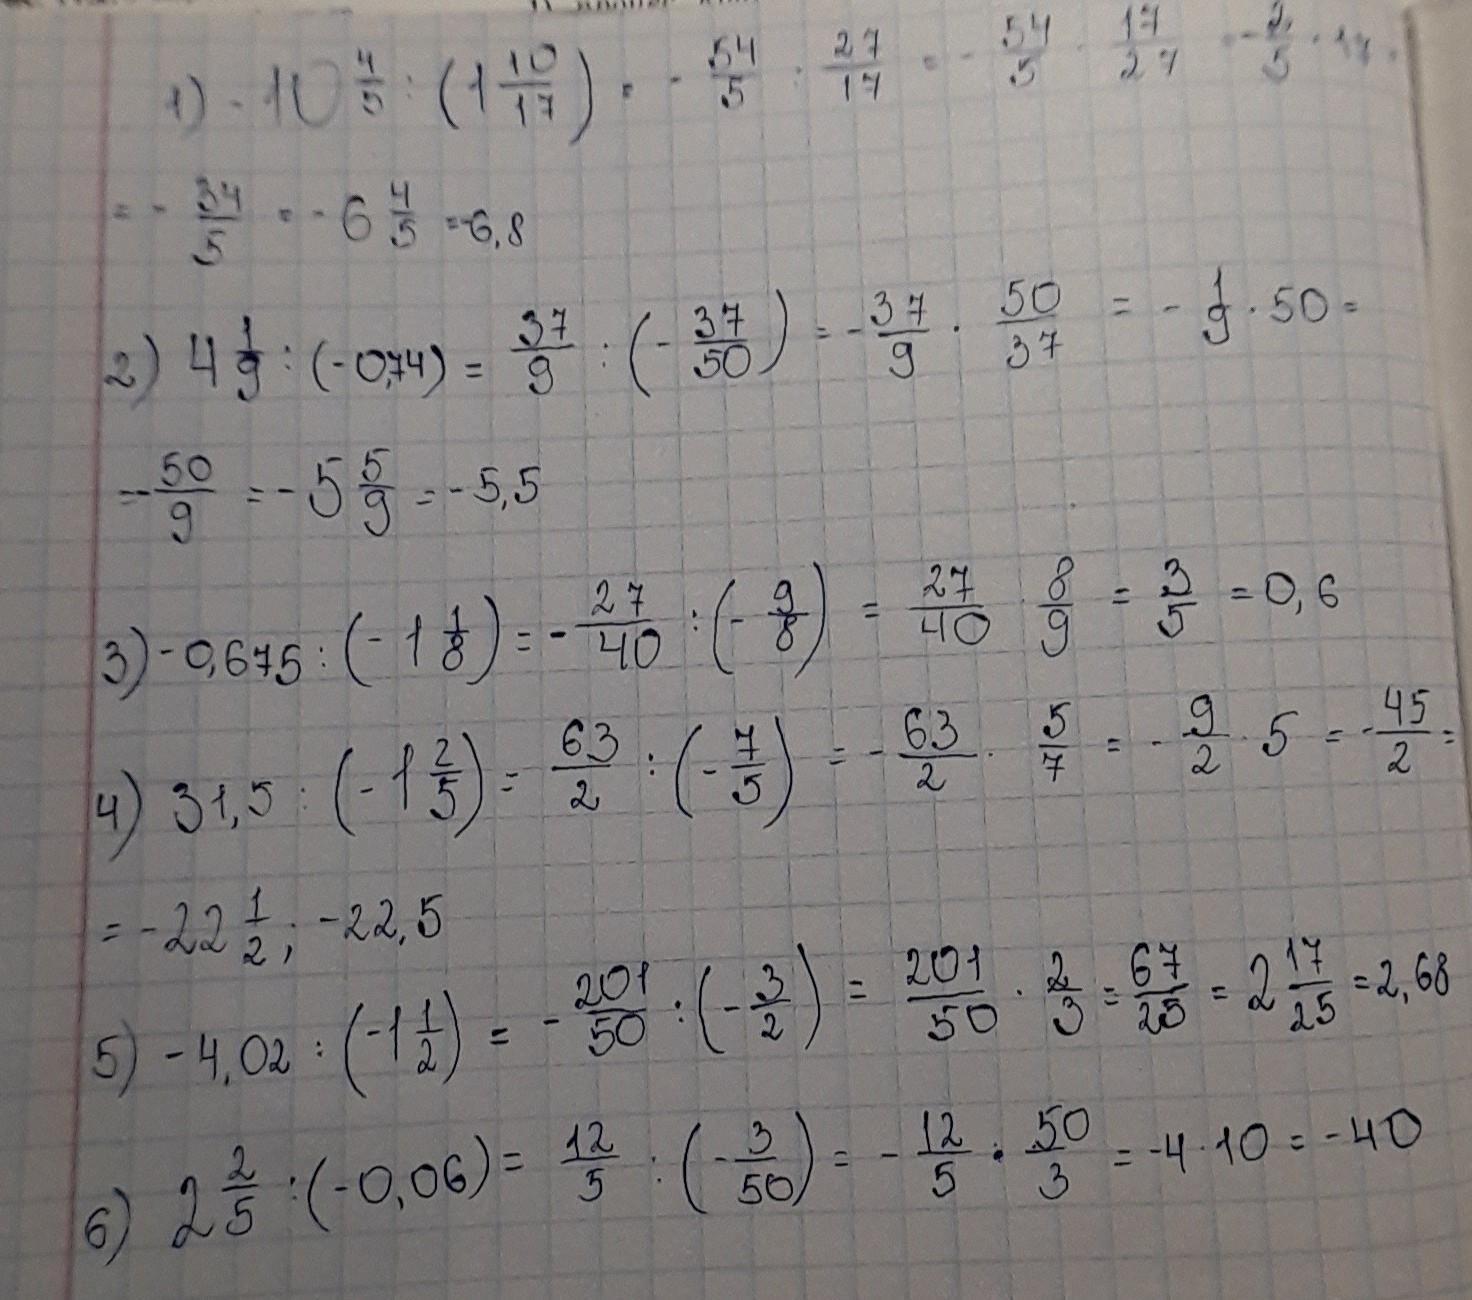 1) -10 4/5 : (1 10/17) = - 54/5 : 27/17 = - 54/5 · 17/27 = - 2/5 · 17 =
= - 34/5 = - 6 4/5 = -6,8
2) 4 1/9 : (-0,74) = 37/9 : (- 37/50) = - 37/9 · 50/37 = - 1/9 · 50 =
- 50/9 = - 5 5/9 = - 5,5
3) - 0,675 : (- 1 1/8) = - 27/40 : (- 9/8) = 27/40 · 8/9 = 3/5 = 0,6
4) 31,5 : (- 1 2/5) = 63/2 : (- 7/5) = - 63/2 · 5/7 = - 9/2 · 5 = - 45/2 =
= - 22 1/2; - 22,5
5) - 4,02 : (-1 1/2) = - 201/50 : (- 3/2) = 201/50 · 2/3 = 67/25 = 2 17/25 = 2,68
6) 2 2/5 : (-0,06) = 12/5 : (- 3/50) = - 12/5 · 50/3 = -4 · 10 = - 40